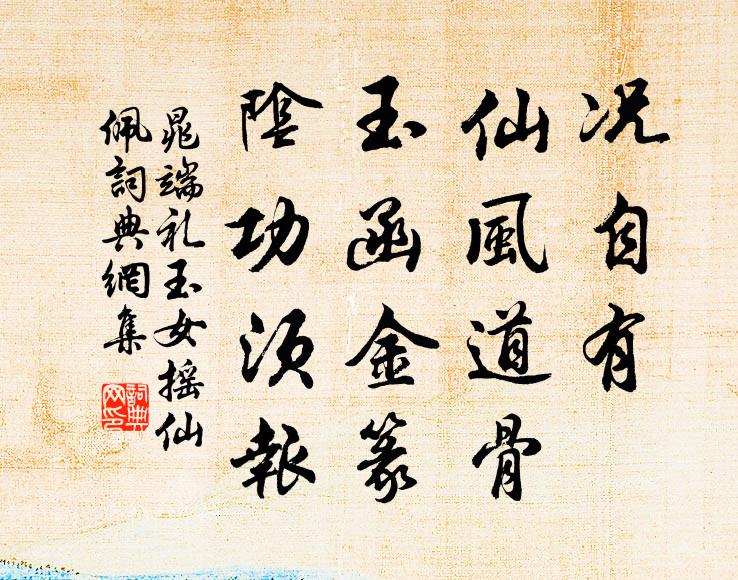 况自有
仙風道骨
玉函金篆
陰功須報
晁端礼玉女摇仙
佩詞典網集
詞典
网印